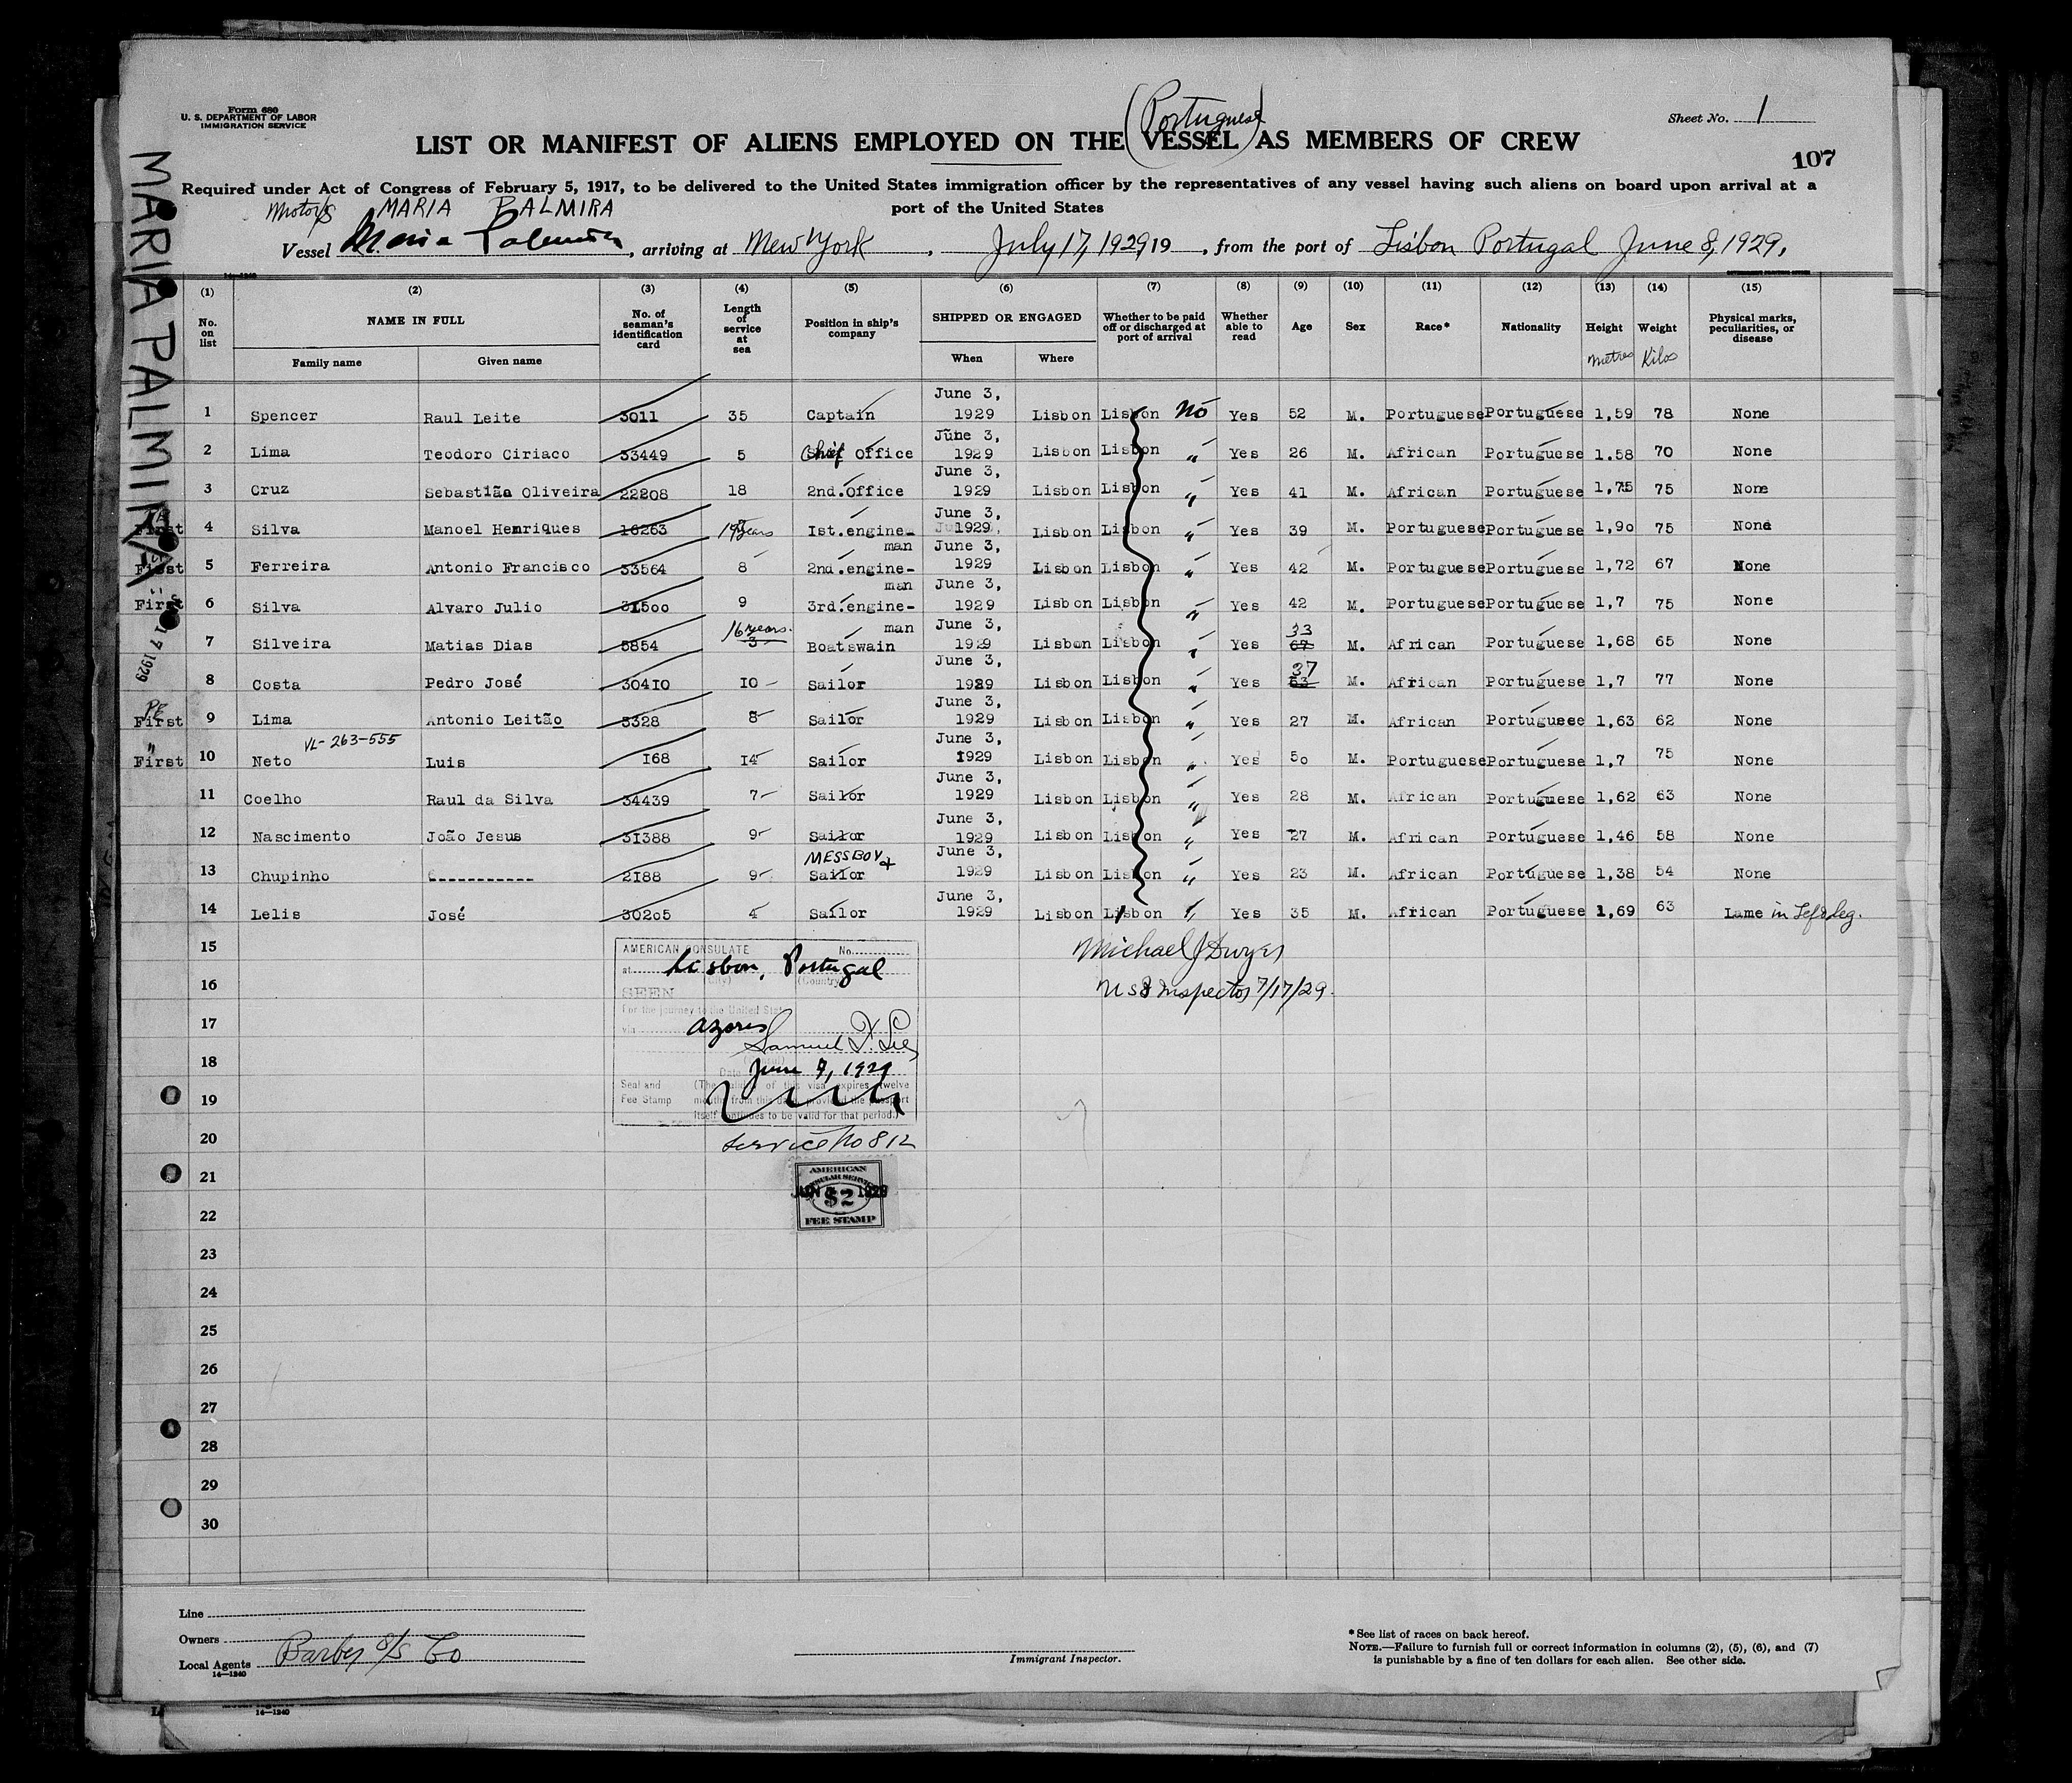 Form 680
U. S. DEPARTMENT OF LABOR
IMMIGRATION SERVICE
(Portuguese)
Sheet No. 1
LIST OR MANIFEST OF ALIENS EMPLOYED ON THE VESSEL AS MEMBERS OF CREW
107
Required under Act of Congress of February 5, 1917, to be delivered to the United States immigration officer by the representatives of any vessel having such aliens on board upon arrival at a
port of the United States
MARIA PALMIRA
Vessel Maria Palmira, arriving at New York, July 17, 1929 19 , from the port of Lisbon Portugal June 8, 1929,
MARIA PALMIRA
17 1929
14—1240
(1) (2) (3) (4) (5) (6) (7) (8) (9) (10) (11) (12) (13) (14) (15)
No. on list NAME IN FULL No. of seaman's identification card Length of service at sea Position in ship's company SHIPPED OR ENGAGED Whether to be paid off or discharged at port of arrival Whether able to read Age Sex Race* Nationality Height Weight Physical marks, peculiarities, or disease
Family name Given name When Where metres Kilos
1 Spencer Raul Leite 3011 35 Captain June 3, 1929 Lisbon Lisbon No Yes 52 M. Portuguese Portuguese 1,59 78 None
2 Lima Teodoro Ciriaco 33449 5 Chief Office June 3, 1929 Lisbon Lisbon " Yes 26 M. African Portuguese 1.58 70 None
3 Cruz Sebastião Oliveira 22208 18 2nd.Office June 3, 1929 Lisbon Lisbon " Yes 41 M. African Portuguese 1,75 75 None
First 4 Silva Manoel Henriques 16263 19 years Ist.engine-man June 3, 1929 Lisbon Lisbon " Yes 39 M. Portuguese Portuguese 1,90 75 None
First 5 Ferreira Antonio Francisco 33564 8 2nd.engine-man June 3, 1929 Lisbon Lisbon " Yes 42 M. Portuguese Portuguese 1,72 67 None
First 6 Silva Alvaro Julio 31500 9 3rd.engine-man June 3, 1929 Lisbon Lisbon " Yes 42 M. Portuguese Portuguese 1,7 75 None
7 Silveira Matias Dias 5854 16 years. 3 Boatswain June 3, 1929 Lisbon Lisbon " Yes 33 67 M. African Portuguese 1,68 65 None
8 Costa Pedro José 30410 10 Sailor June 3, 1929 Lisbon Lisbon " Yes 37 53 M. African Portuguese 1,7 77 None
PE First 9 Lima Antonio Leitão 3328 8 Sailor June 3, 1929 Lisbon Lisbon " Yes 27 M. African Portuguese 1,63 62 None
VL-263-555
" First 10 Neto Luis 168 14 Sailor June 3, 1929 Lisbon Lisbon " Yes 50 M. Portuguese Portuguese 1,7 75 None
11 Coelho Raul da Silva 34439 7 Sailor June 3, 1929 Lisbon Lisbon " Yes 28 M. African Portuguese 1,62 63 None
12 Nascimento João Jesus 31388 9 Sailor June 3, 1929 Lisbon Lisbon " Yes 27 M. African Portuguese 1,46 58 None
13 Chupinho ----------- 2188 9 MESSBOY + Sailor June 3, 1929 Lisbon Lisbon " Yes 23 M. African Portuguese 1,38 54 None
14 Lelis José 30205 4 Sailor June 3, 1929 Lisbon Lisbon " Yes 35 M. African Portuguese 1,69 63 Lame in Left leg.
15
16
17
18
19
20
21
22
23
24
25
26
27
28
29
30
AMERICAN CONSULATE No.
at Lisbon, Portugal
(City) (Country)
SEEN
For the journey to the United States
via Azores
Date June 7, 1929
Seal and Fee Stamp
(The validity of this visa expires twelve
months from this date, provided the passport
itself continues to be valid for that period.)
Service No 812
AMERICAN
CONSULAR SERVICE
$2
FEE STAMP
Michael J Dwyer
US Inspector 7/17/29.
Line
Owners
Local Agents Barber S/S Co
14—1240
Immigrant Inspector.
*See list of races on back hereof.
NOTE.—Failure to furnish full or correct information in columns (2), (5), (6), and (7)
is punishable by a fine of ten dollars for each alien. See other side.
14—1240